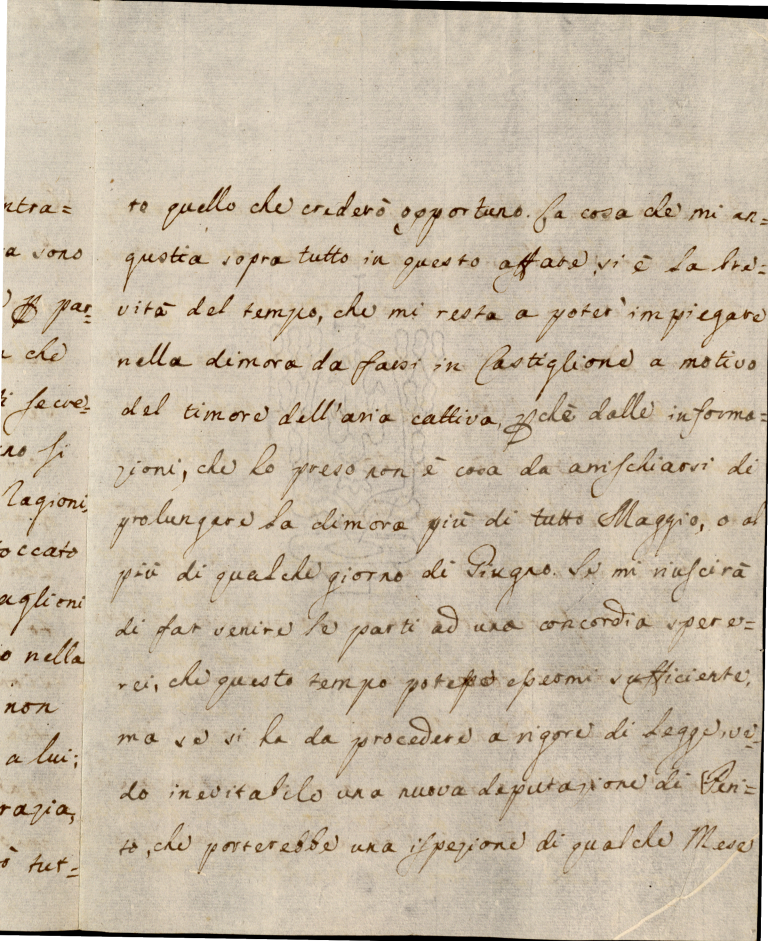 ntra=
a sono
ꝑ par=
che
i secre=
no si
Ragioni,
occato
aglioni
o nella
non
a lui;
razia,
ò tut=
to quello che crederò opportuno. La cosa che mi an=
gustia sopra tutto in questo affare, si è la bre=
vità del tempo, che mi resta a poter impiegare
nella dimora da farsi in Castiglione a motivo
del timore dell'aria cattiva, ꝑchè dalle informa=
zioni, che ho preso non è cosa da arrischiarsi di
prolungare la dimora più di tutto Maggio, o al
più di qualche giorno di Giugno. Se mi riuscirà
di far venire le parti ad una concordia spere=
rei, che questo tempo potesse essermi sufficiente,
ma se si ha da procedere a rigore di Legge, ve=
do inevitabile una nuova deputazione di Peri=
to, che porterebbe una ispezione di qualche Mese